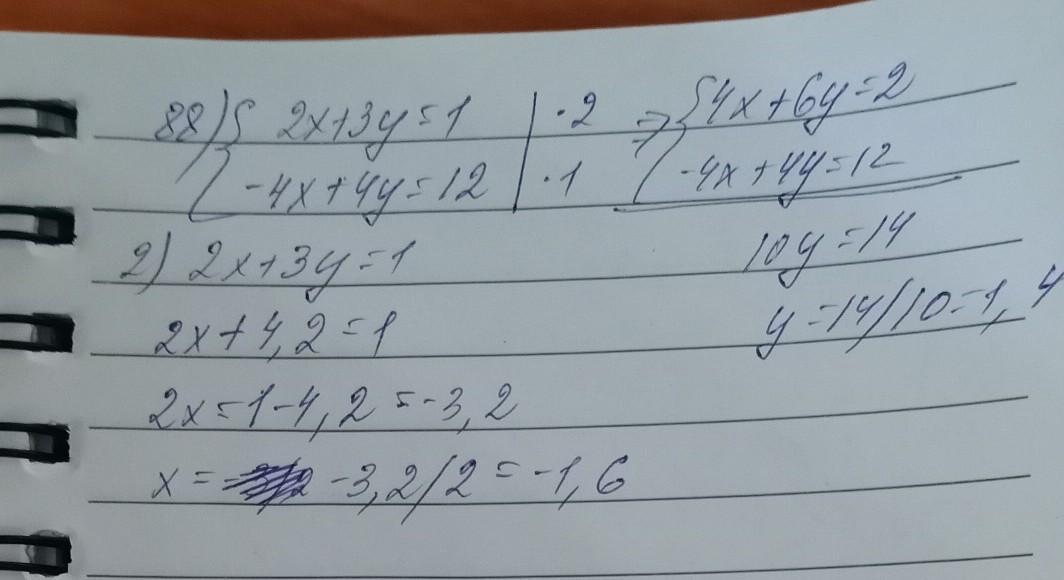 88) { 2x+3y=1 | ·2 => { 4x+6y=2
{ -4x+4y=12 | ·1 { -4x+4y=12
10y=14
y=14/10=1,4
2) 2x+3y=1
2x+4,2=1
2x=1-4,2=-3,2
x= -3,2/2=-1,6